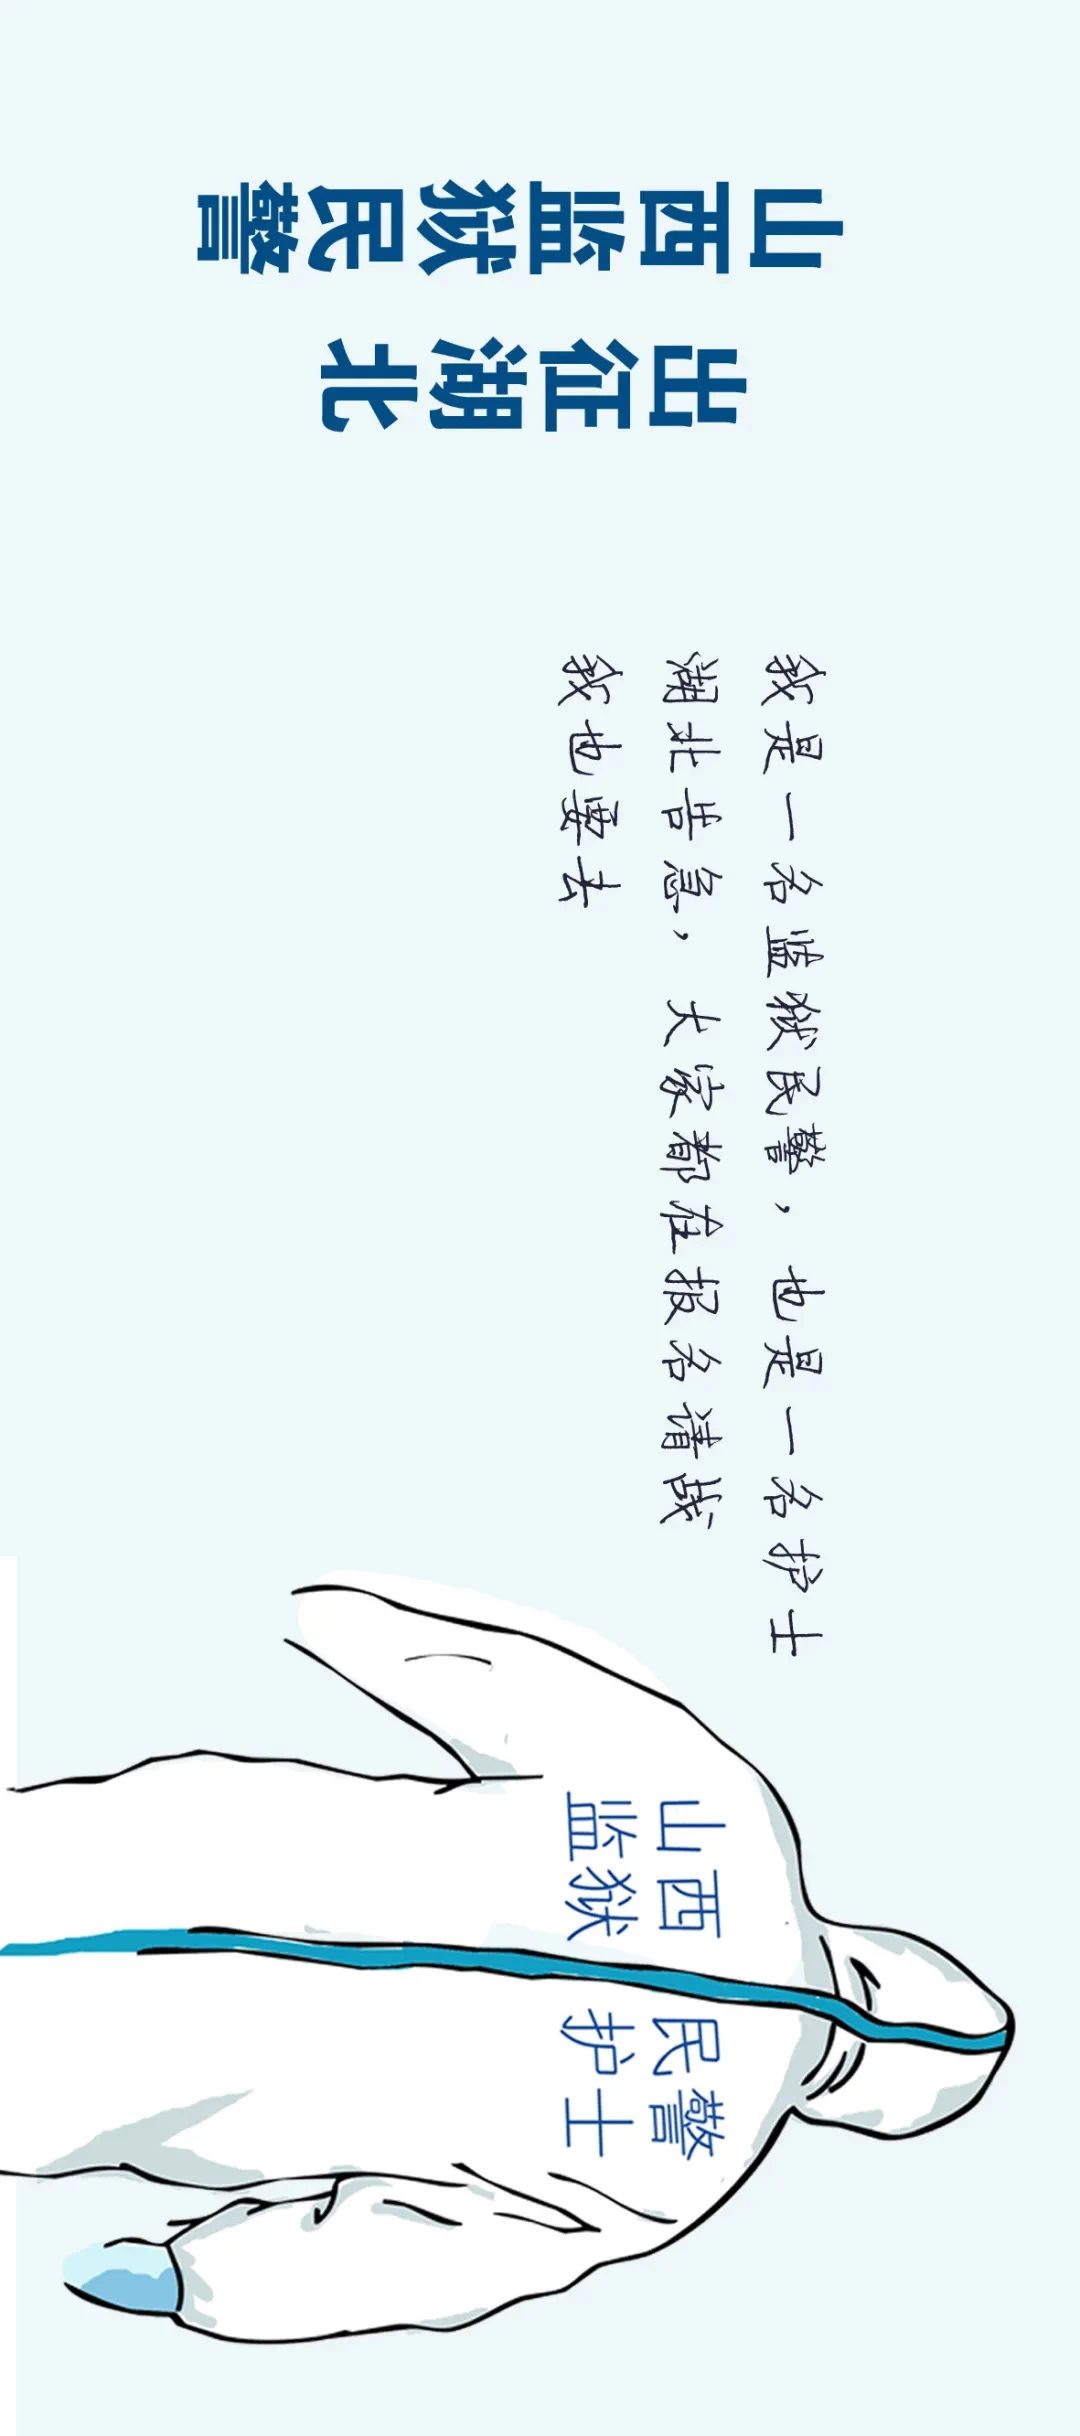 山西监狱民警
出征湖北
我是一名监狱民警，也是一名护士
湖北告急，大家都在报名请战
我也要去
山西
监狱
民警
护士